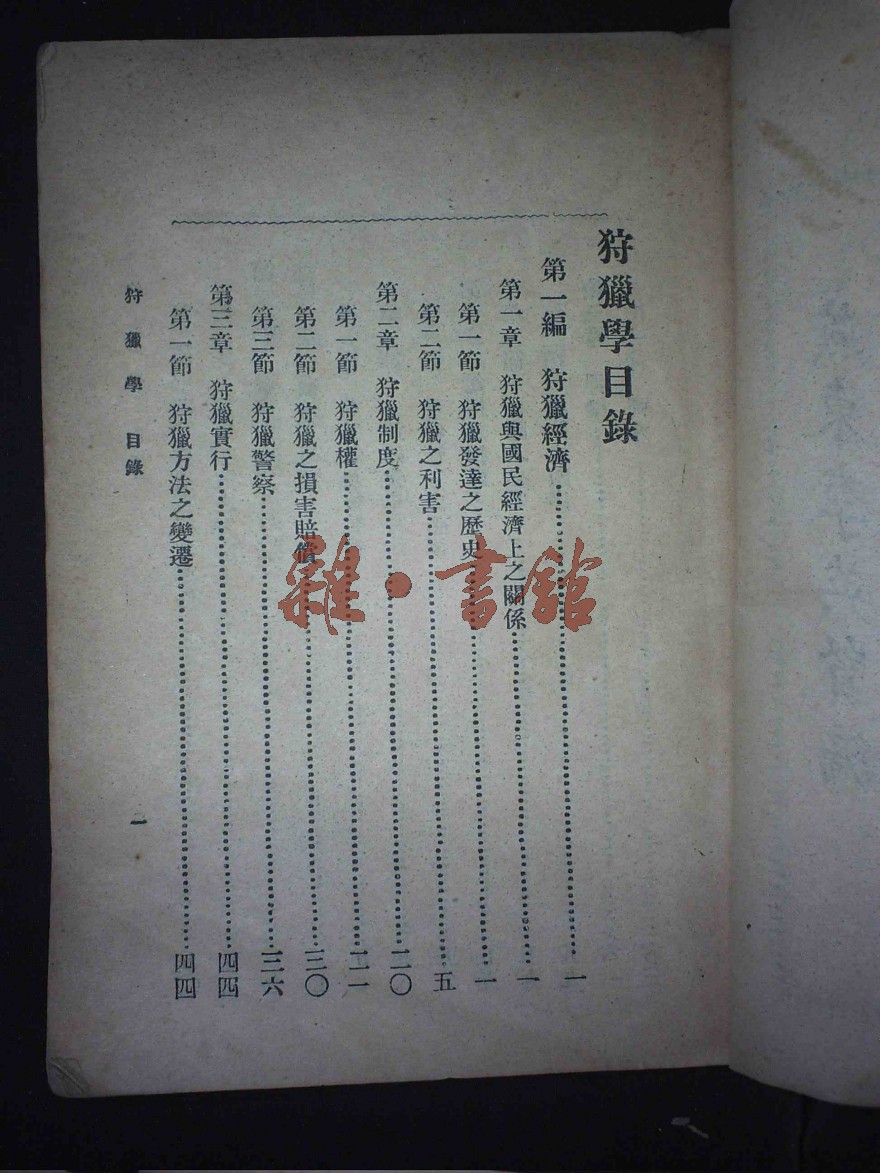 狩獵學目錄
第一編 狩獵經濟…………一
第一章 狩獵與國民經濟上之關係…………一
第一節 狩獵發達之歷史…………一
第二節 狩獵之利害…………五
第二章 狩獵制度…………二〇
第一節 狩獵權…………二一
第二節 狩獵之損害賠償…………三〇
第三節 狩獵警察…………三六
第三章 狩獵實行…………四四
第一節 狩獵方法之變遷…………四四
狩獵學 目錄
一
雜·書館